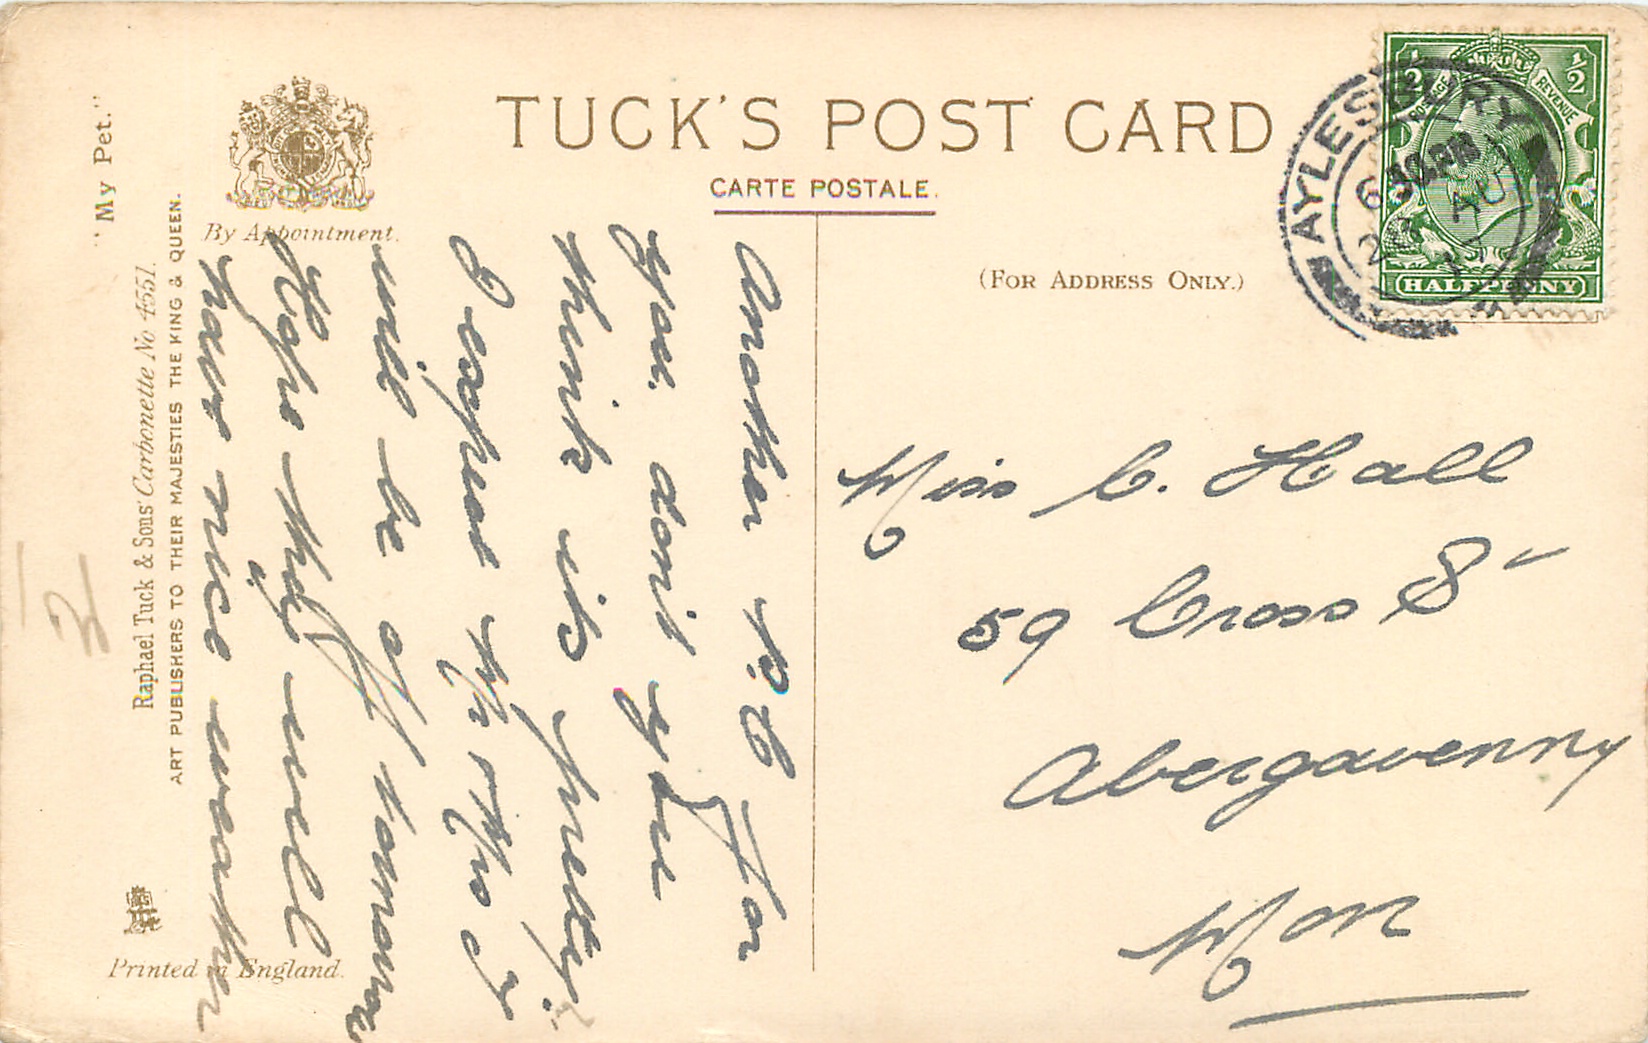 "My Pet."
Raphael Tuck & Sons' Carbonette No 4551.
ART PUBLISHERS TO THEIR MAJESTIES THE KING & QUEEN.
By Appointment.
Printed in England.
TUCK'S POST CARD
CARTE POSTALE.
(FOR ADDRESS ONLY.)
1/2 1/2
POSTAGE REVENUE
HALFPENNY
AYLESBURY
AU
Another P.C for
you. don't you
think its pretty.
I expect Mr & Mrs J
will be off tomorrow
Hope they will
have nice weather
Miss C. Hall
59 Cross St
Abergavenny
Mon
2/-